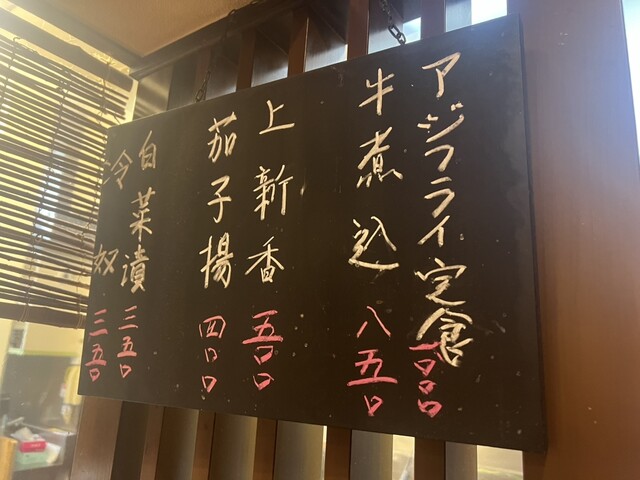 アジフライ定食 一〇〇〇
牛煮込 八五〇
上新香 五〇〇
茄子揚 四〇〇
白菜漬 三五〇
冷奴 三五〇